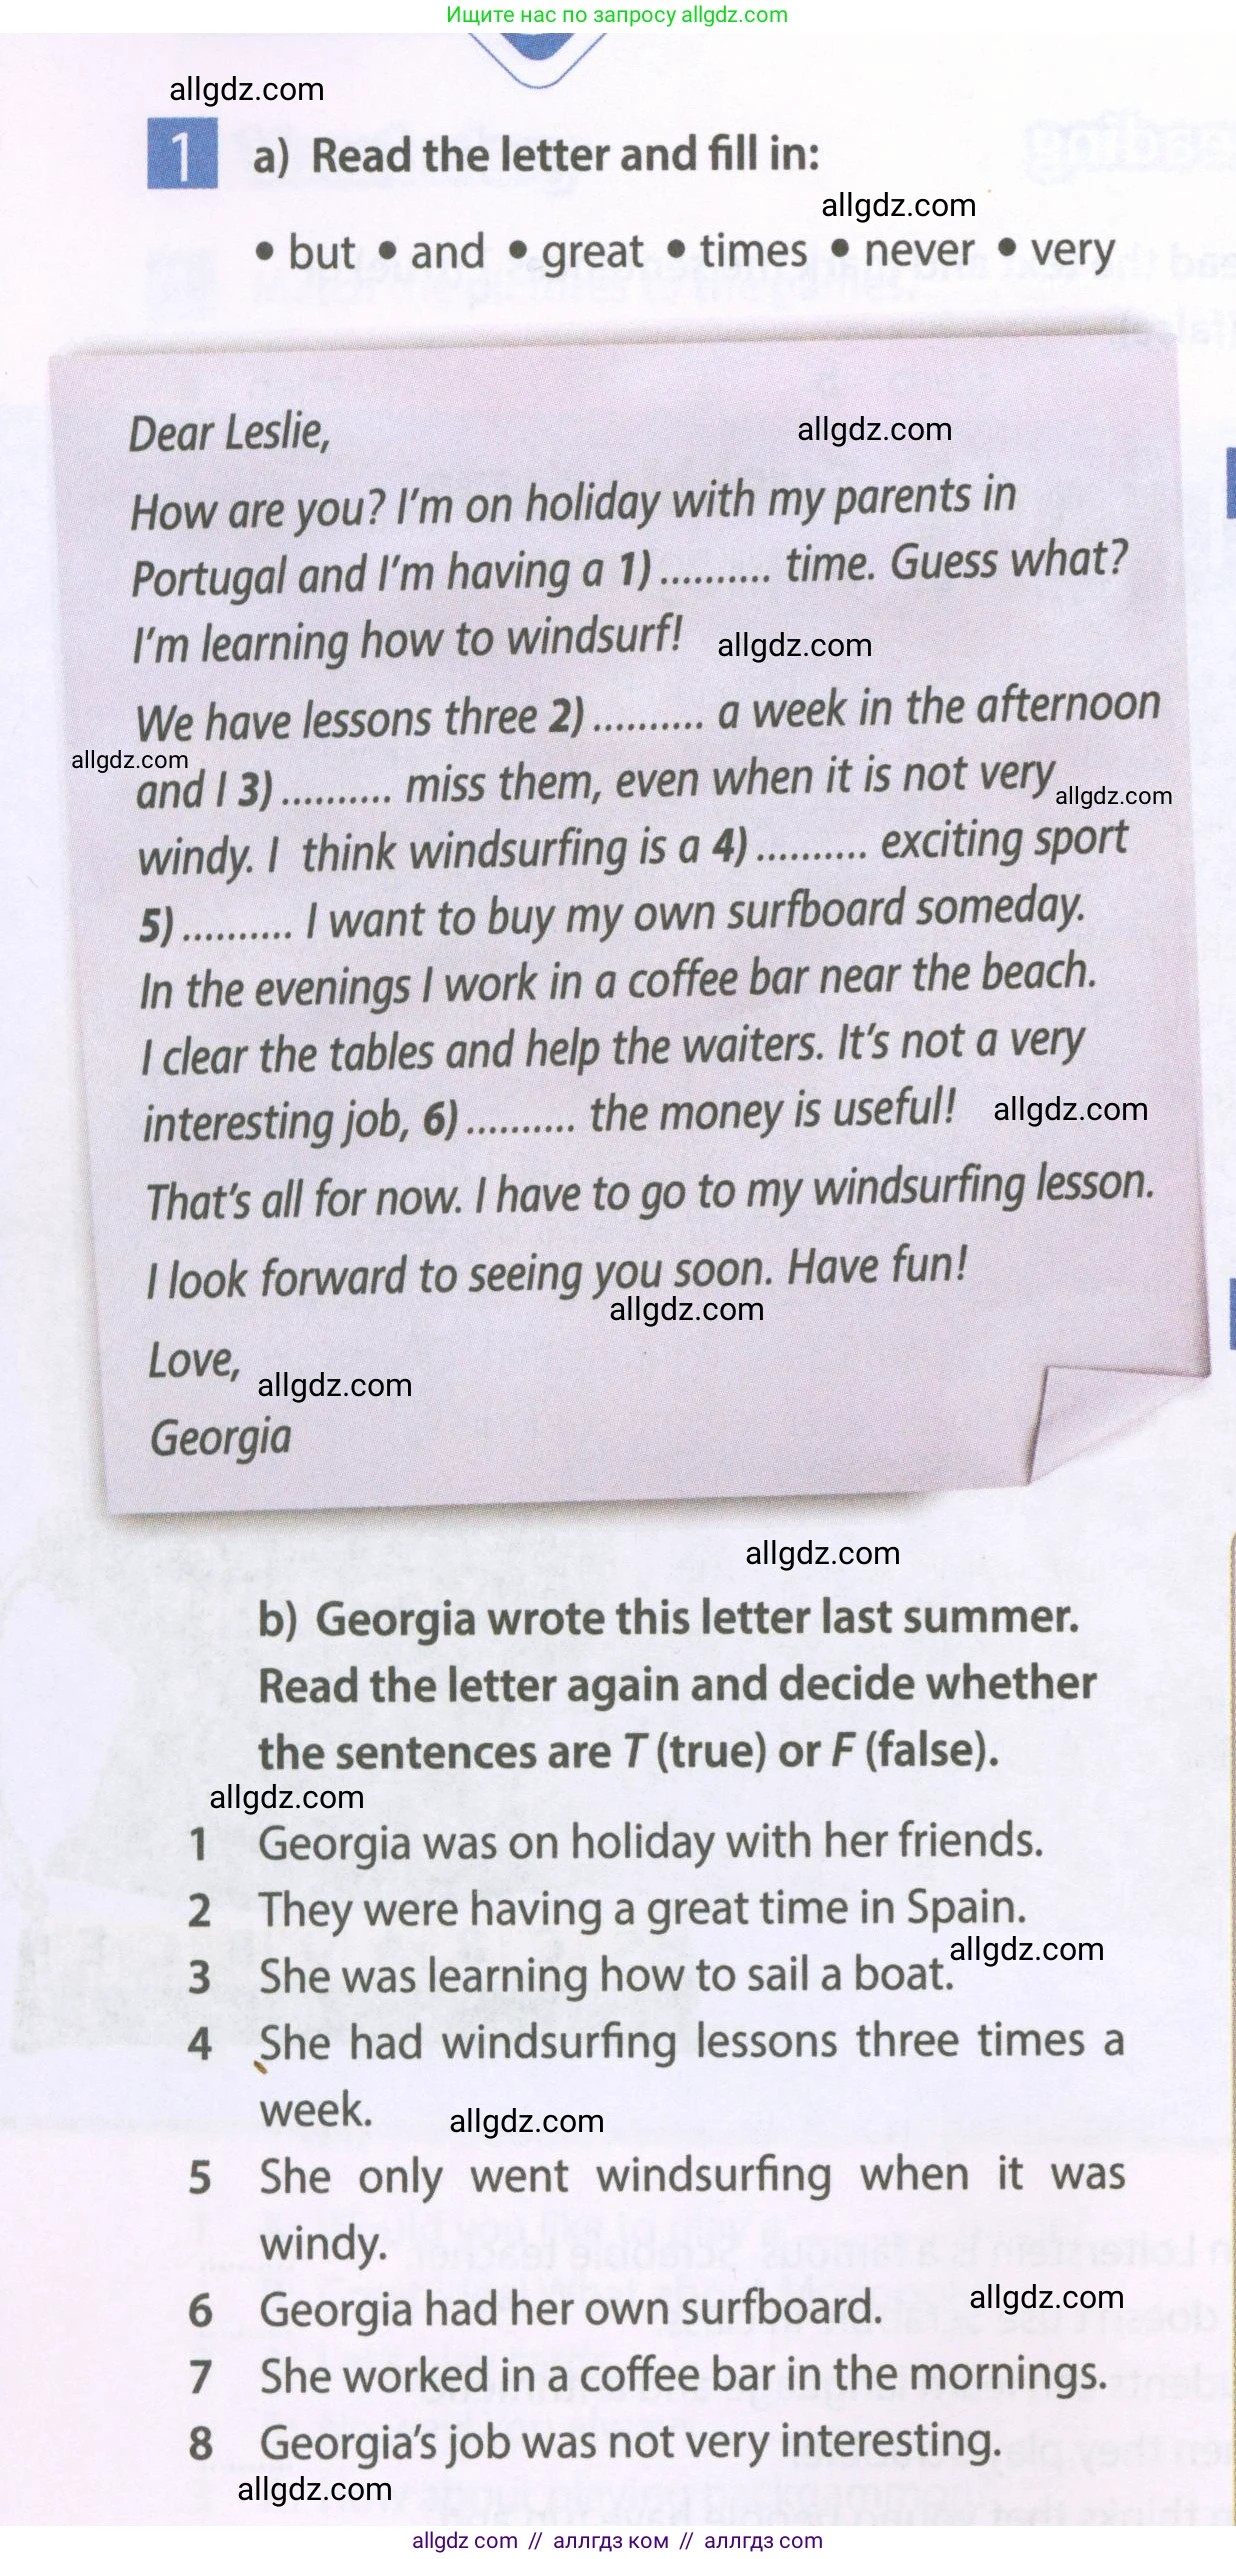 Ищите нас по запросу allgdz.com
allgdz.com
1 a) Read the letter and fill in:
allgdz.com
• but • and • great • times • never • very
Dear Leslie,
allgdz.com
How are you? I'm on holiday with my parents in
Portugal and I'm having a 1) .......... time. Guess what?
I'm learning how to windsurf!
allgdz.com
We have lessons three 2) .......... a week in the afternoon
allgdz.com
and I 3) .......... miss them, even when it is not very
allgdz.com
windy. I think windsurfing is a 4) .......... exciting sport
5) .......... I want to buy my own surfboard someday.
In the evenings I work in a coffee bar near the beach.
I clear the tables and help the waiters. It's not a very
interesting job, 6) .......... the money is useful!
allgdz.com
That's all for now. I have to go to my windsurfing lesson.
I look forward to seeing you soon. Have fun!
allgdz.com
Love,
allgdz.com
Georgia
allgdz.com
b) Georgia wrote this letter last summer.
Read the letter again and decide whether
the sentences are T (true) or F (false).
allgdz.com
1 Georgia was on holiday with her friends.
2 They were having a great time in Spain.
allgdz.com
3 She was learning how to sail a boat.
4 She had windsurfing lessons three times a
week.
allgdz.com
5 She only went windsurfing when it was
windy.
6 Georgia had her own surfboard.
allgdz.com
7 She worked in a coffee bar in the mornings.
8 Georgia's job was not very interesting.
allgdz.com
allgdz com // аллгдз ком // аллгдз com